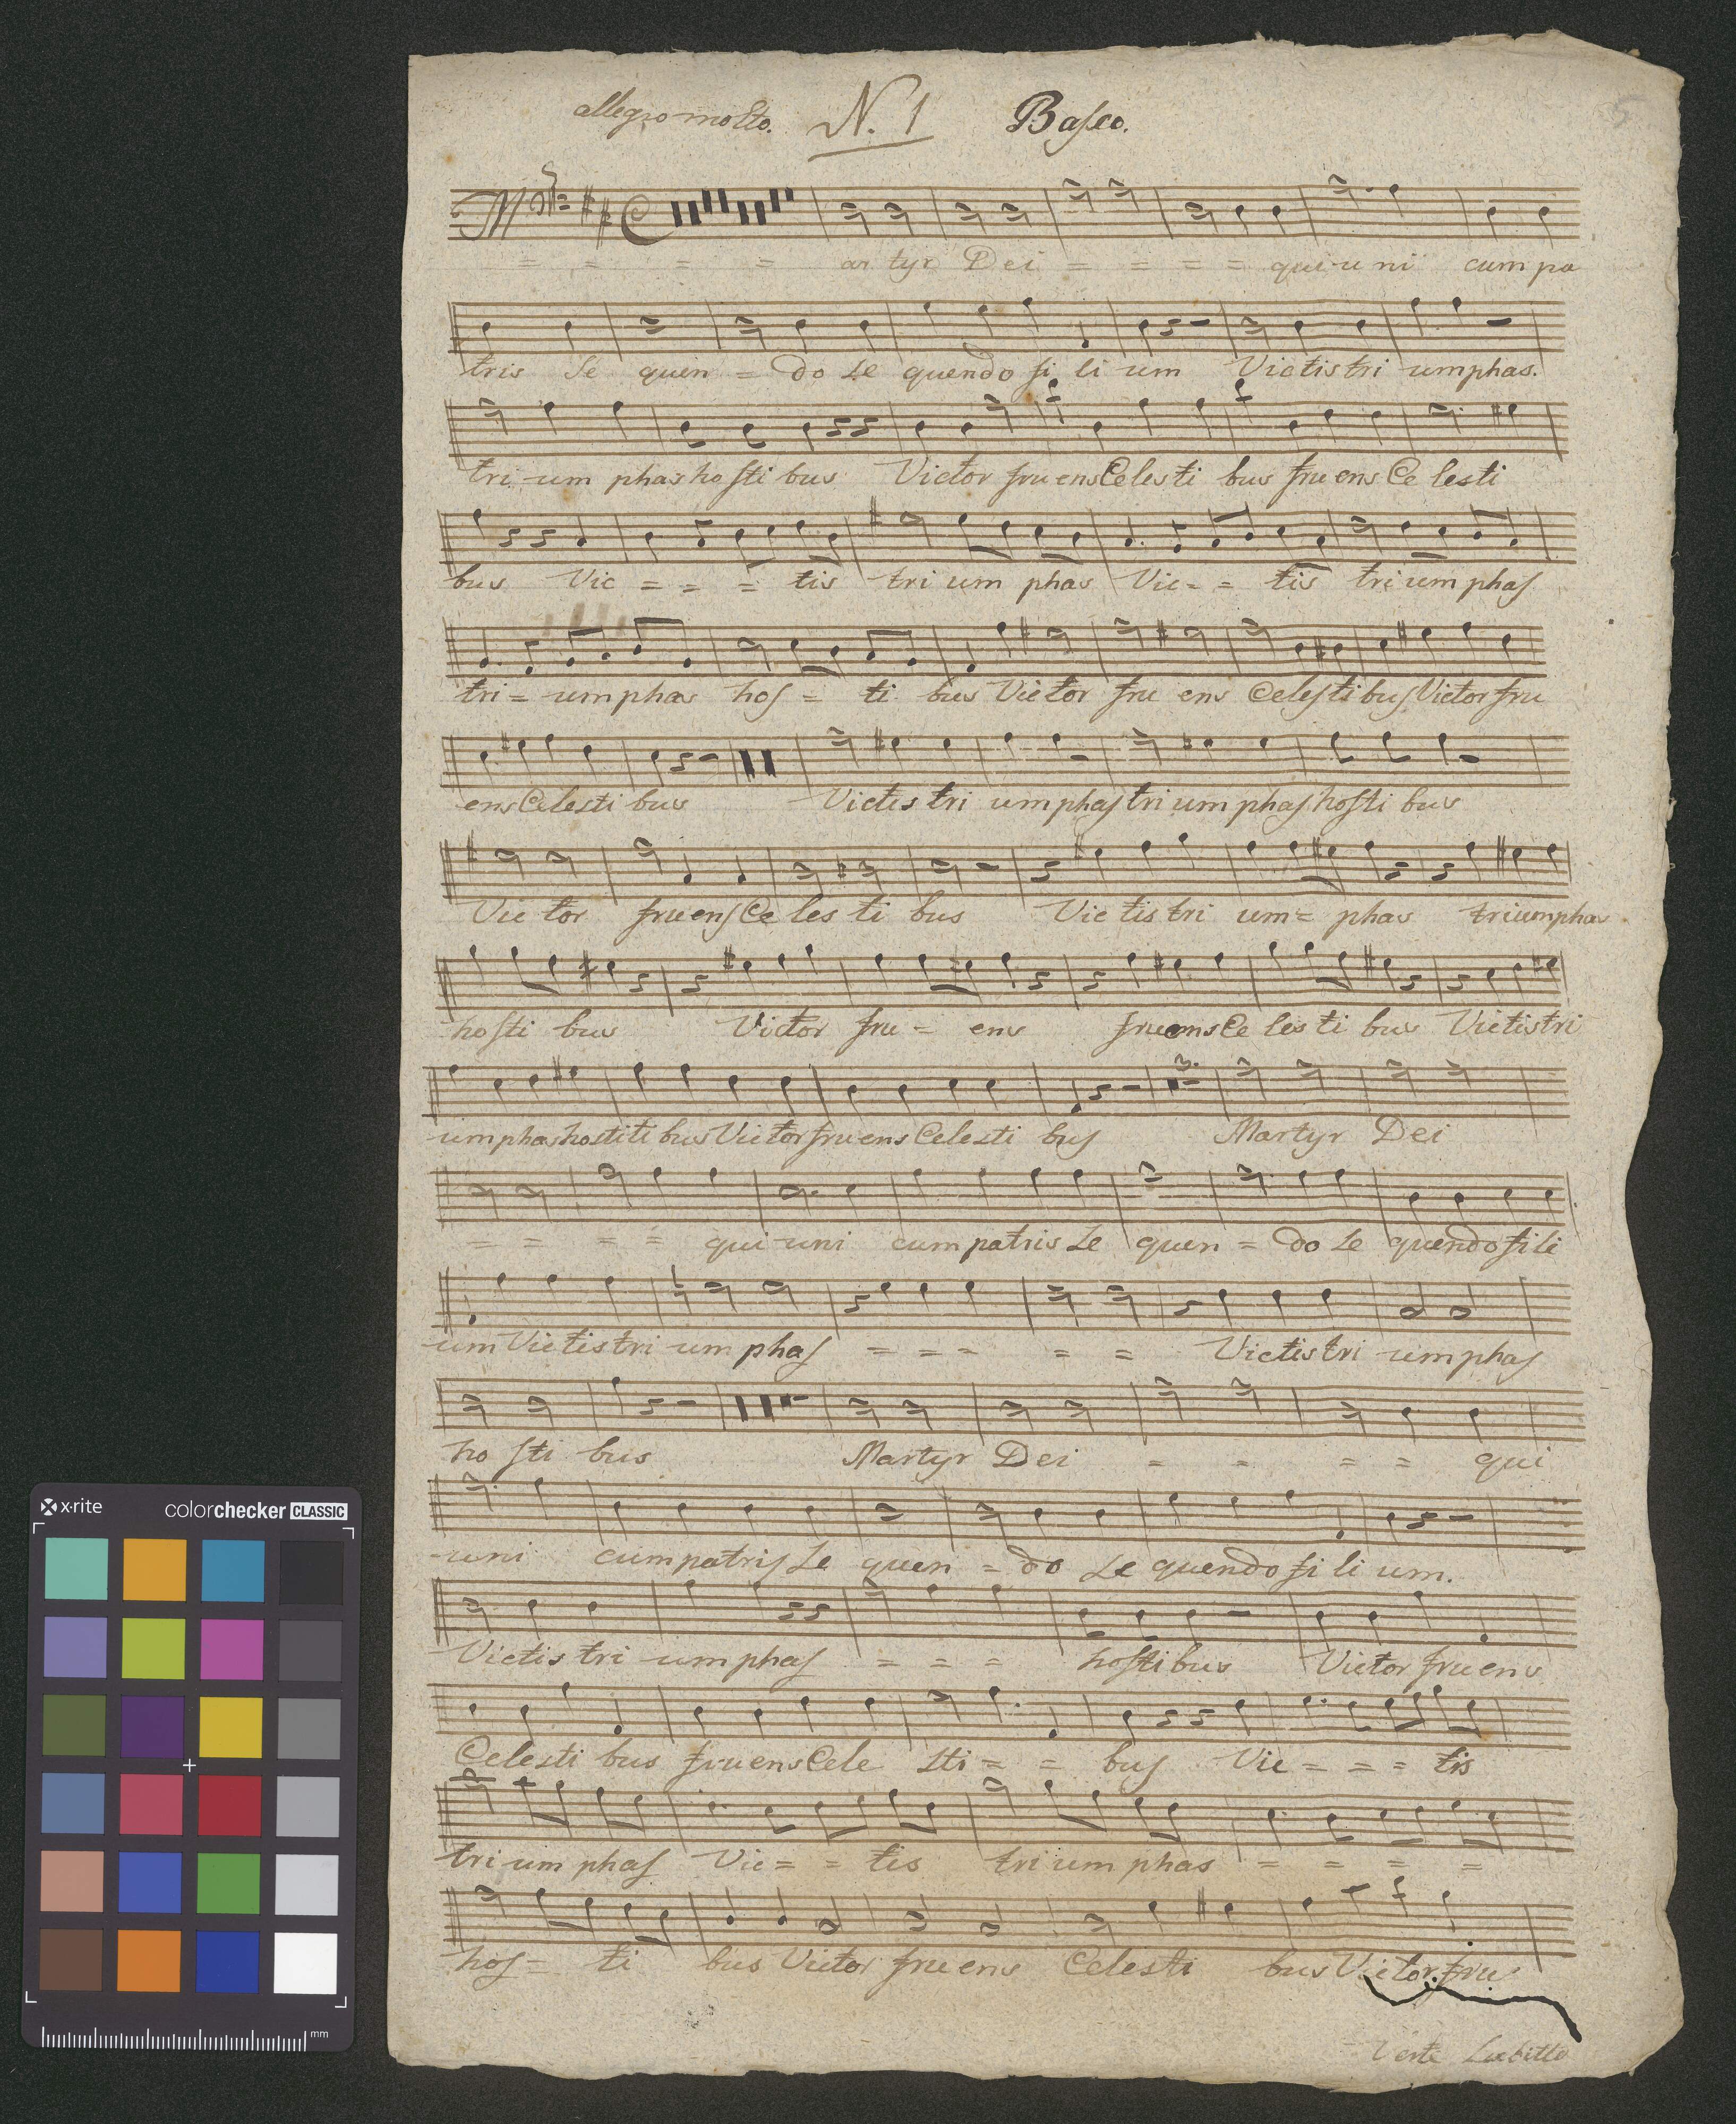 allegro molto. N. 1 Baſso. 5
M = = = = ar tyr Dei = = = = qui u ni cum pa
tris Se quen = do Se quendo fi li um Victis tri umphas.
tri um phas ho ſti bus Victor fru ens Celes ti bus fru ens Ce lesti
bus Vic = = = tis tri um phas Vic = = tis tri um phaſ
tri = um phas hoſ = ti bus Victor fru ens Celeſti buſ Victor fru
ens Celesti bus Victis tri um phaſ tri um phaſ hoſti bus
Victor fruenſ Ce les ti bus Vic tis tri um = phas triumphas
hoſti bus Victor fru = ens fruens Ce les ti bus Victis tri
um phas hostiti bus Victor fru ens Celesti buſ Martyr Dei
= = = = qui uni cum patris Se quen = do Se quendo fi li
um Victis tri um phaſ = = = = = Victis tri um phaſ
ho ſti bus Martyr Dei = = = = qui
uni cum patriſ Se quen = do Se quendo fi li um.
Victis tri um phaſ = = = hoſti bus Victor fru ens
Celesti bus fru ens Cele sti = = buſ Vic = = = tis
tri um phaſ Vic = = tis tri um phas = = = =
hoſ = ti bus Victor fru ens Celesti bus Victor fru
Verte Subitto
x·rite colorchecker CLASSIC
mm